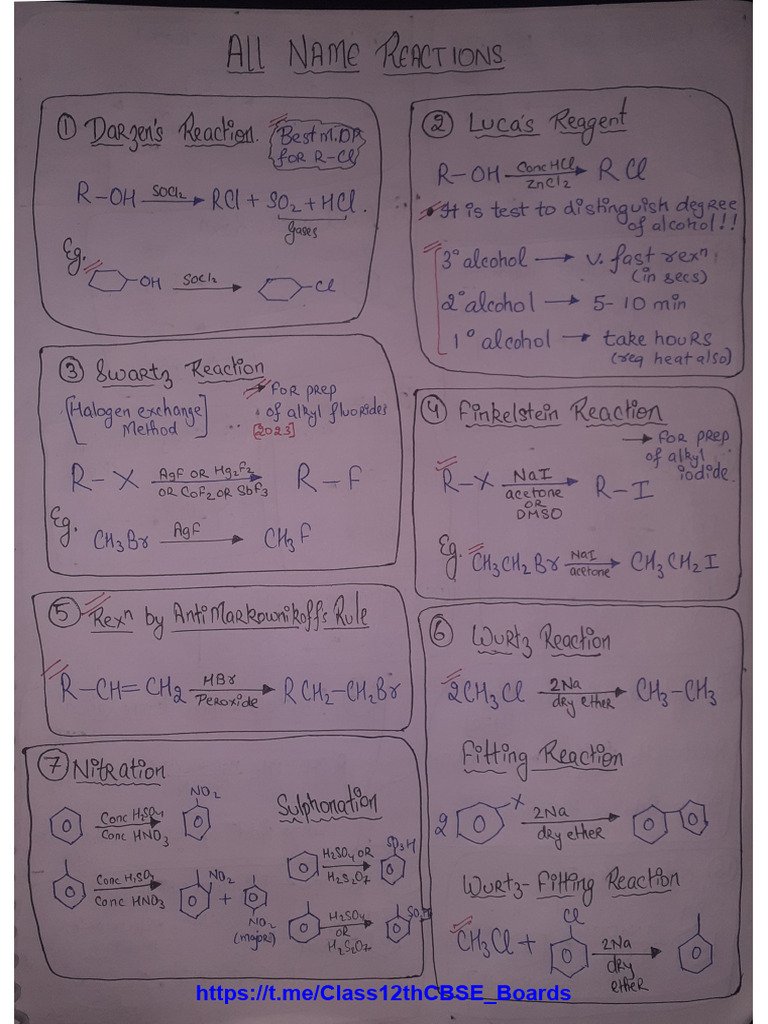 ALL NAME REACTIONS
① Darzen's Reaction.
Best M.OP
for R-Cl
R-OH SOCl2 → RCl + SO2 + HCl.
gases
Eg.
-OH SOCl2 → -Cl
② Luca's Reagent
R-OH Conc HCl → R Cl
ZnCl2
It is test to distinguish degree
of alcohol!!
3° alcohol → v. fast rexn
(in secs)
2° alcohol → 5-10 min
1° alcohol → take hours
(req heat also)
③ Swartz Reaction
[Halogen exchange
Method]
→ for prep
of alkyl fluorides
[2023]
R-X AgF OR Hg2F2 → R-F
OR CoF2 OR SbF3
Eg.
CH3Br AgF → CH3F
④ Finkelstein Reaction
→ for prep
of alkyl
iodide.
R-X NaI → R-I
acetone
OR
DMSO
Eg. CH3CH2Br NaI → CH3CH2I
acetone
⑤ Rexn by AntiMarkownikoff's Rule
R-CH=CH2 HBr → RCH2-CH2Br
Peroxide
⑥ Wurtz Reaction
2CH3Cl 2Na → CH3-CH3
dry ether
Fitting Reaction
2 X 2Na →
dry ether
Wurtz-Fitting Reaction
Cl
CH3Cl + 2Na →
dry
ether
⑦ Nitration
NO2
Conc H2SO4 →
Conc HNO3
Conc H2SO4 → NO2 +
Conc HNO3
NO2
(major)
Sulphonation
SO3H
H2SO4 OR →
H2S2O7
H2SO4 →
OR
H2S2O7
https://t.me/Class12thCBSE_Boards